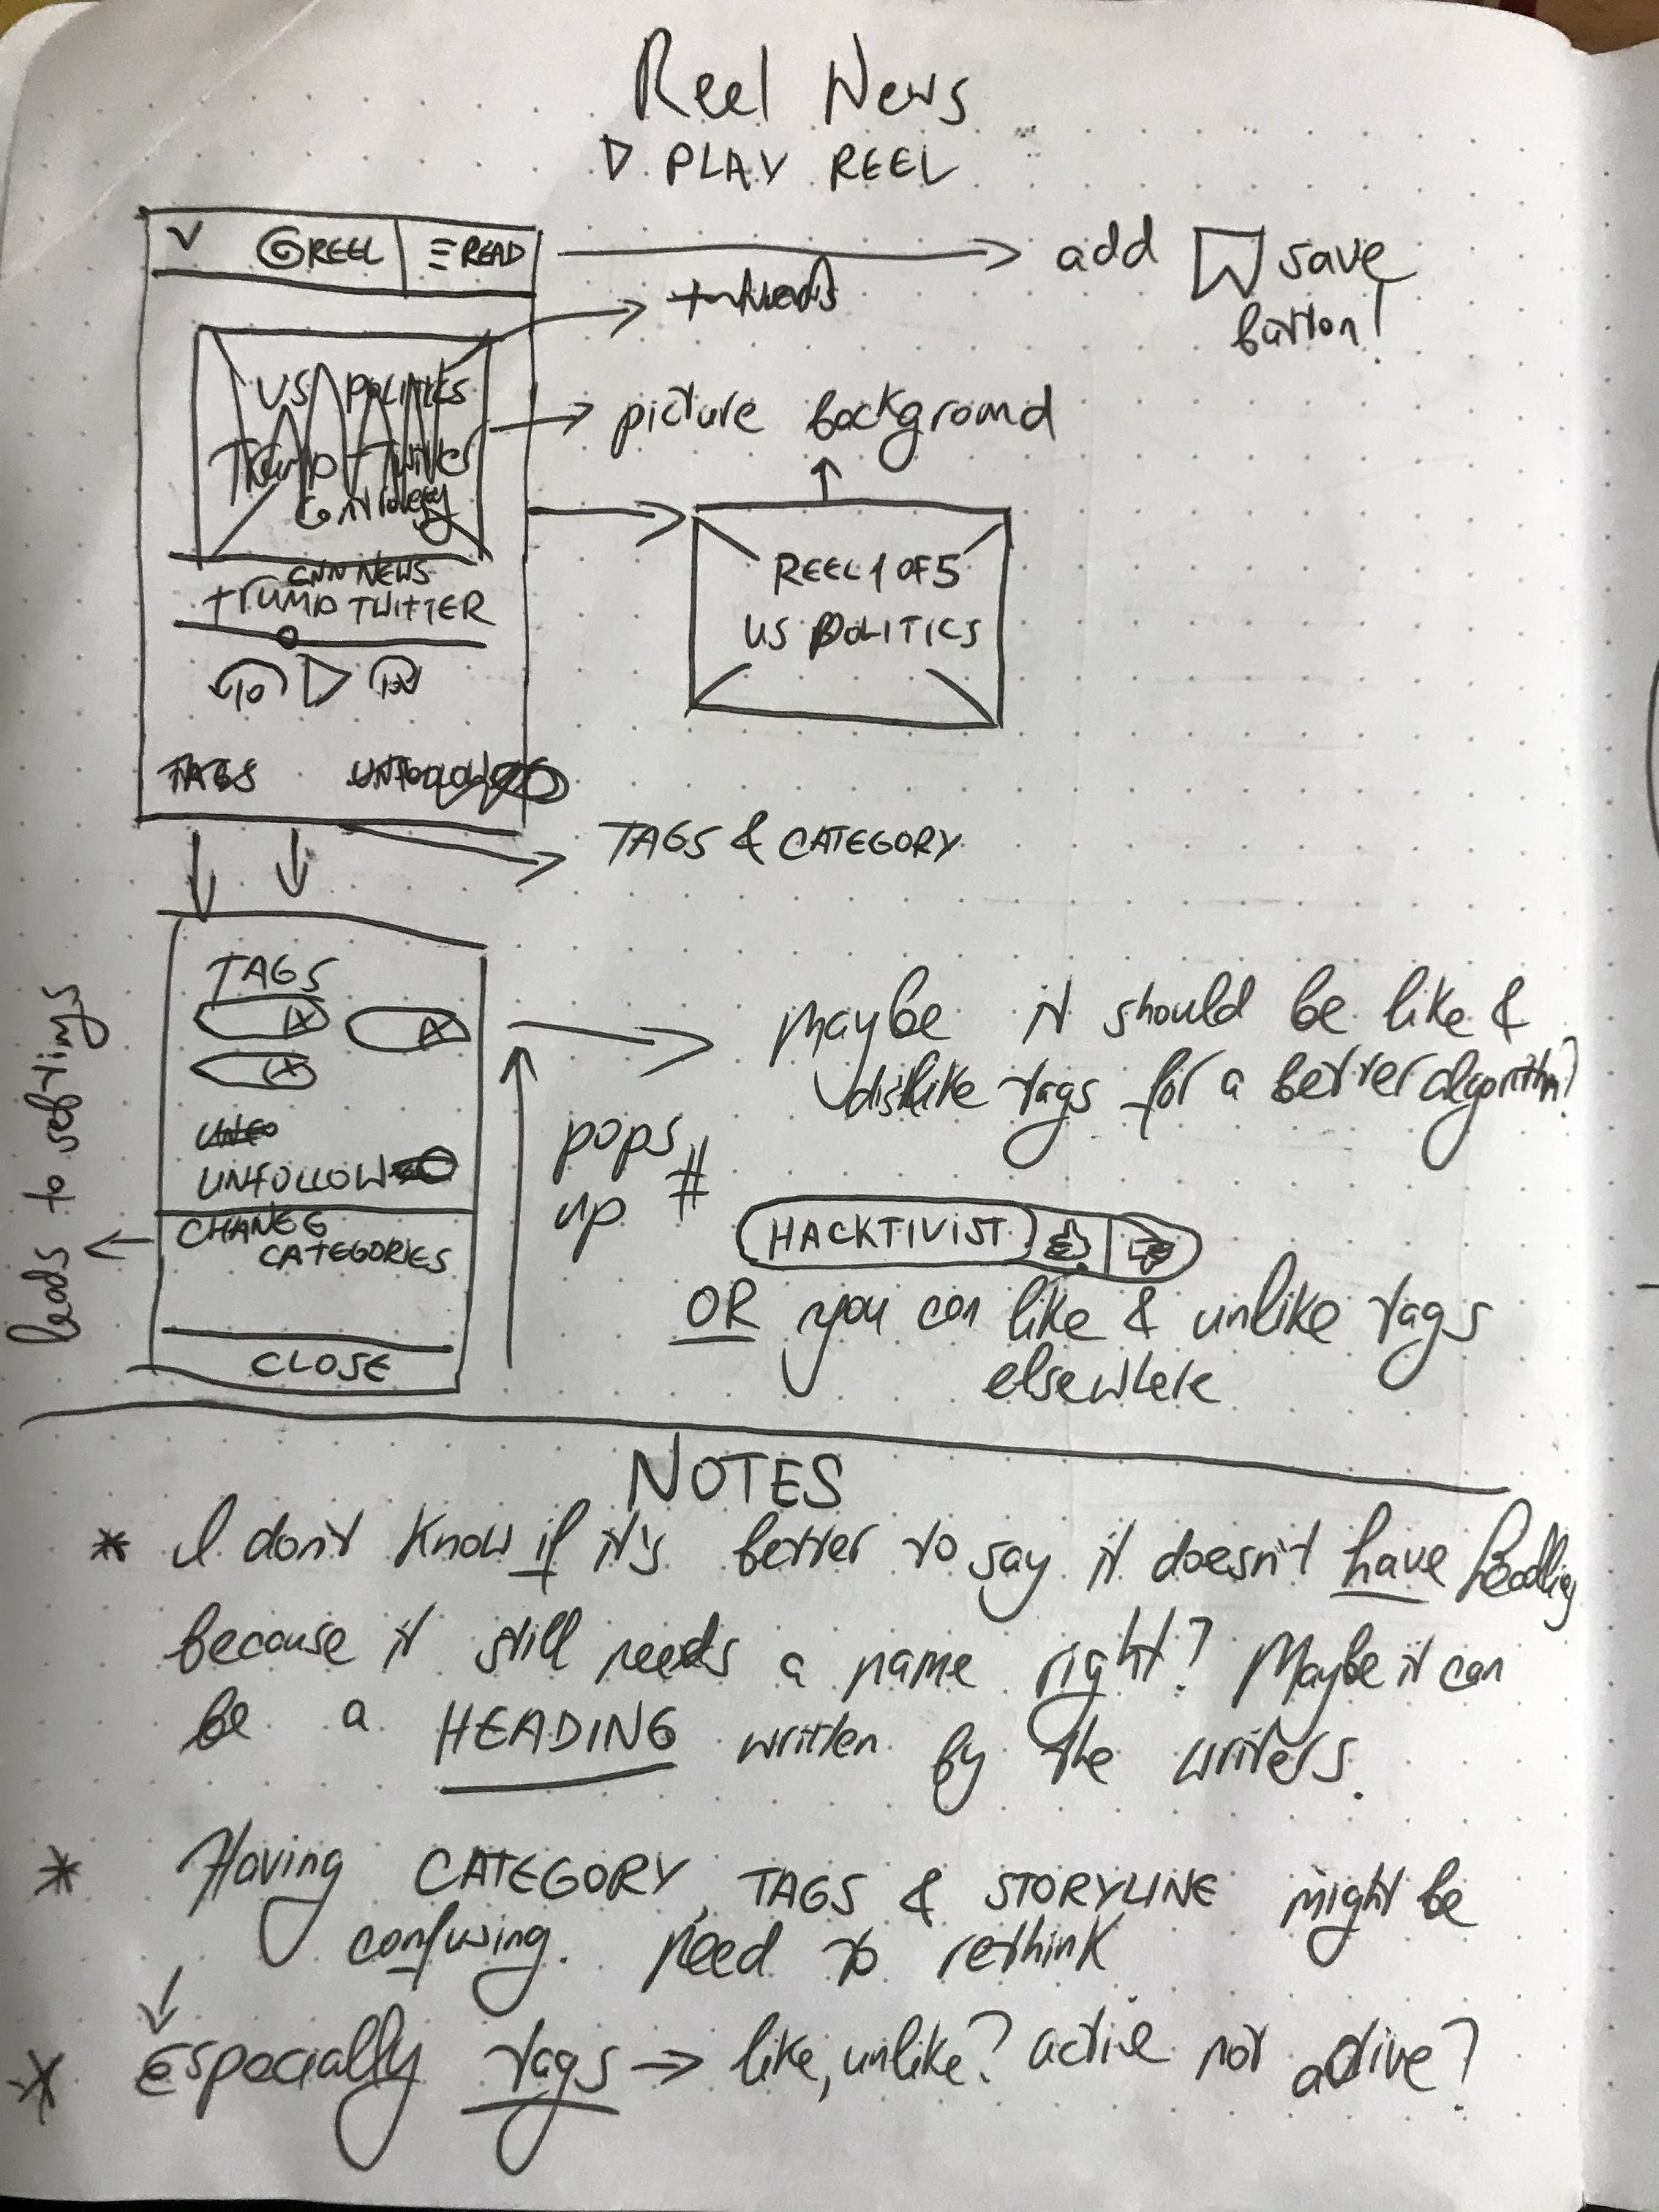 Reel News
▷ PLAY REEL
REEL
READ
add
save
button!
US POLITICS
Trump Twitter
picture background
CNN NEWS
TRUMP TWITTER
10
10
REEL 1 OF 5
US POLITICS
TAGS
UNFOLLOW
TAGS & CATEGORY
leads to settings
TAGS
UNFO
UNFOLLOW
CHANGE
CATEGORIES
CLOSE
pops
up
maybe it should be like &
dislike tags for a better algorithm?
#
HACKTIVIST
OR you can like & unlike tags
elsewhere
NOTES
* I don't know if it's better to say it doesn't have
because it still needs a name right? Maybe it can
be a HEADING written by the writers.
* Having CATEGORY, TAGS & STORYLINE might be
confusing. Need to rethink
* Especially tags → like, unlike? active not active?